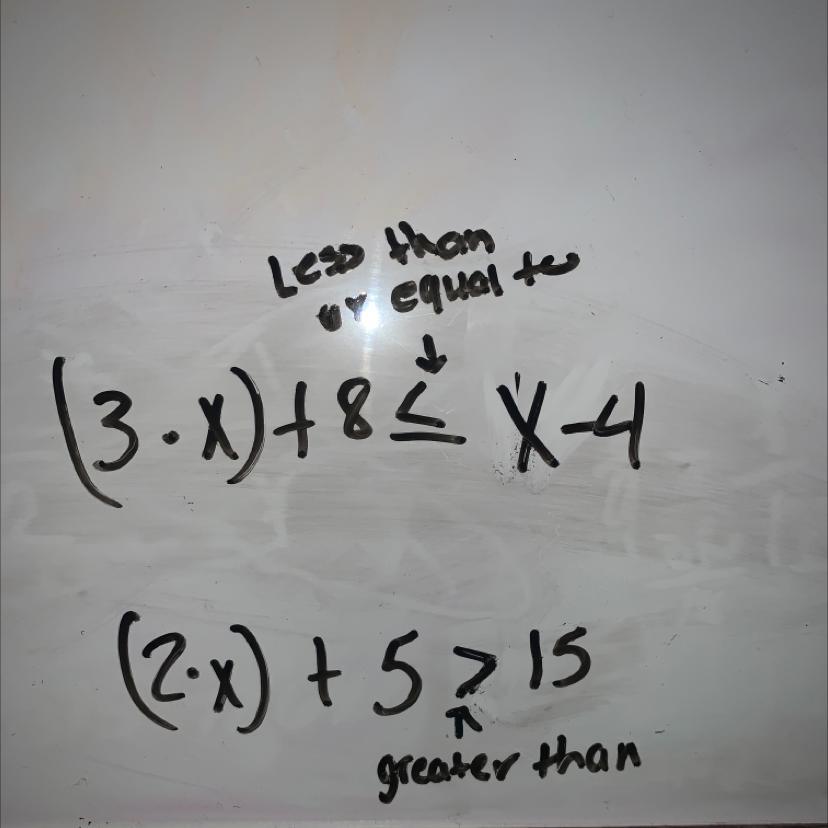 Less than
or equal to
↓
(3·x)+8≤ x-4
(2·x) + 5 > 15
↑
greater than